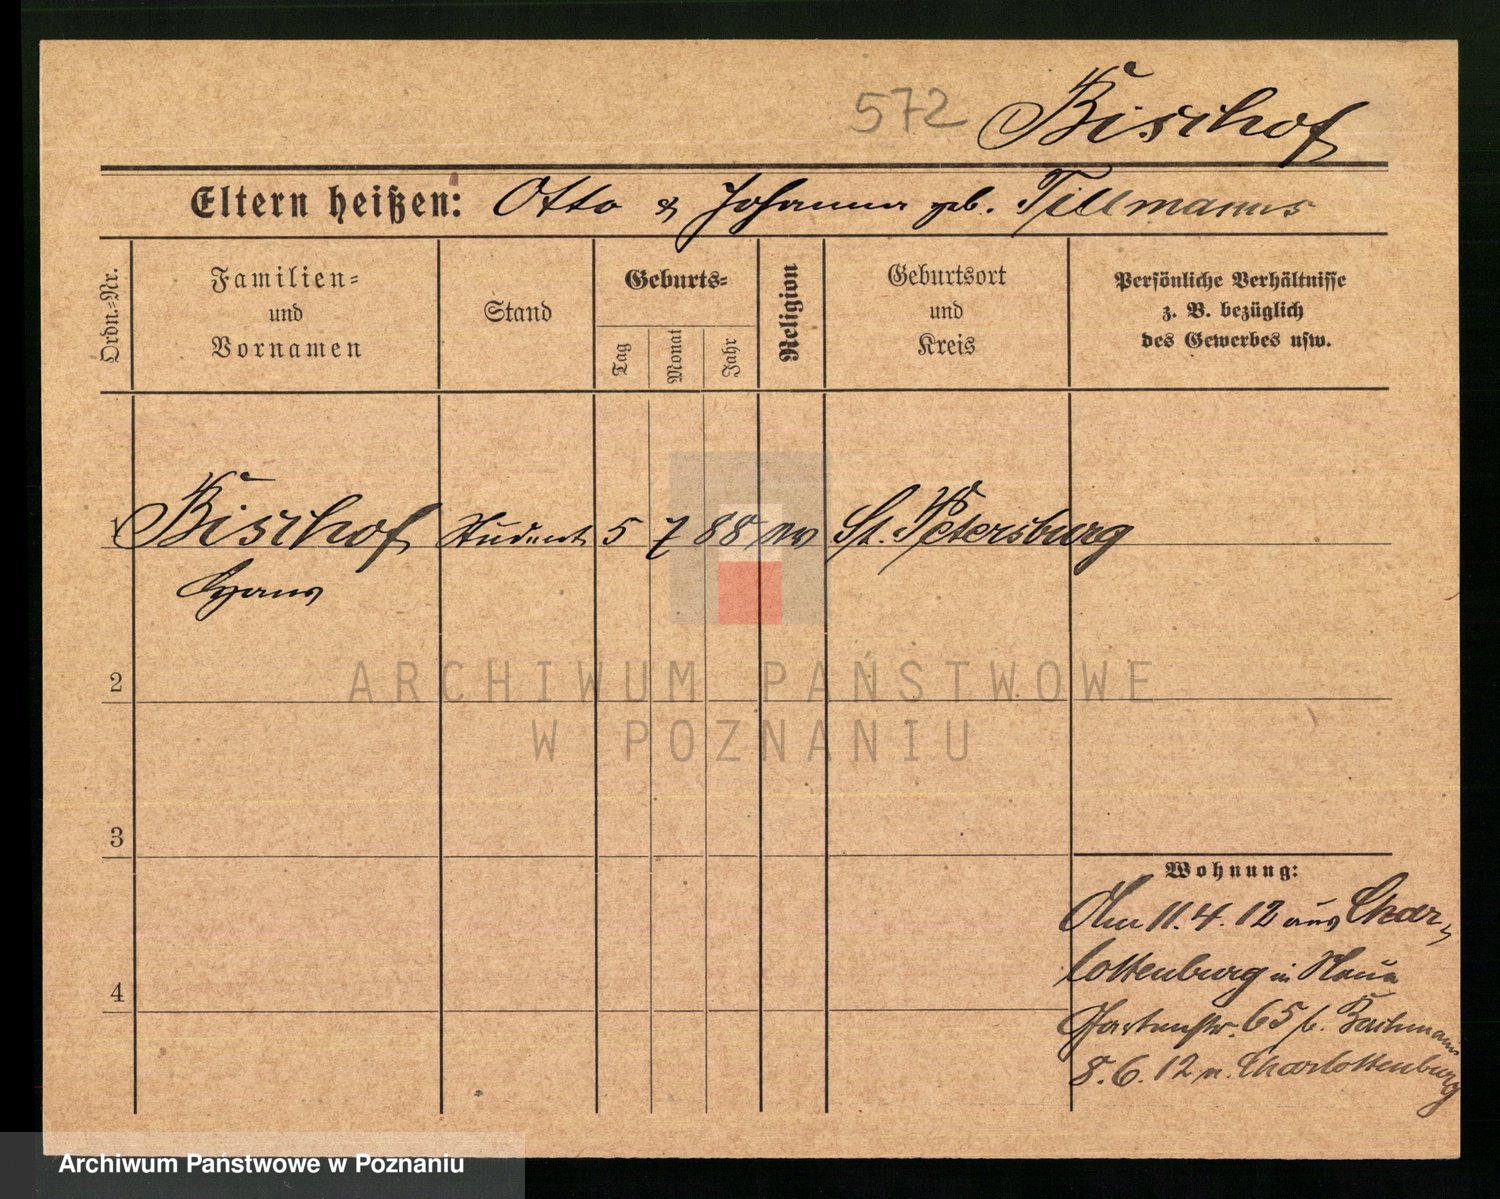 572 Bischof
Eltern heißen: Otto & Johanna geb. Tillmanns
Ordn.-Nr.
Familien-
und
Vornamen
Stand
Geburts-
Tag
Monat
Jahr
Religion
Geburtsort
und
Kreis
Persönliche Verhältnisse
z. B. bezüglich
des Gewerbes usw.
1 Bischof Student 5 7 88 ev St. Petersburg
Hans
2
ARCHIWUM PAŃSTWOWE
W POZNANIU
3
Wohnung:
11.4.12 aus Char-
lottenburg in
4
Gartenstr. 65 b. Bachmann
8.6.12 n. Charlottenburg
Archiwum Państwowe w Poznaniu